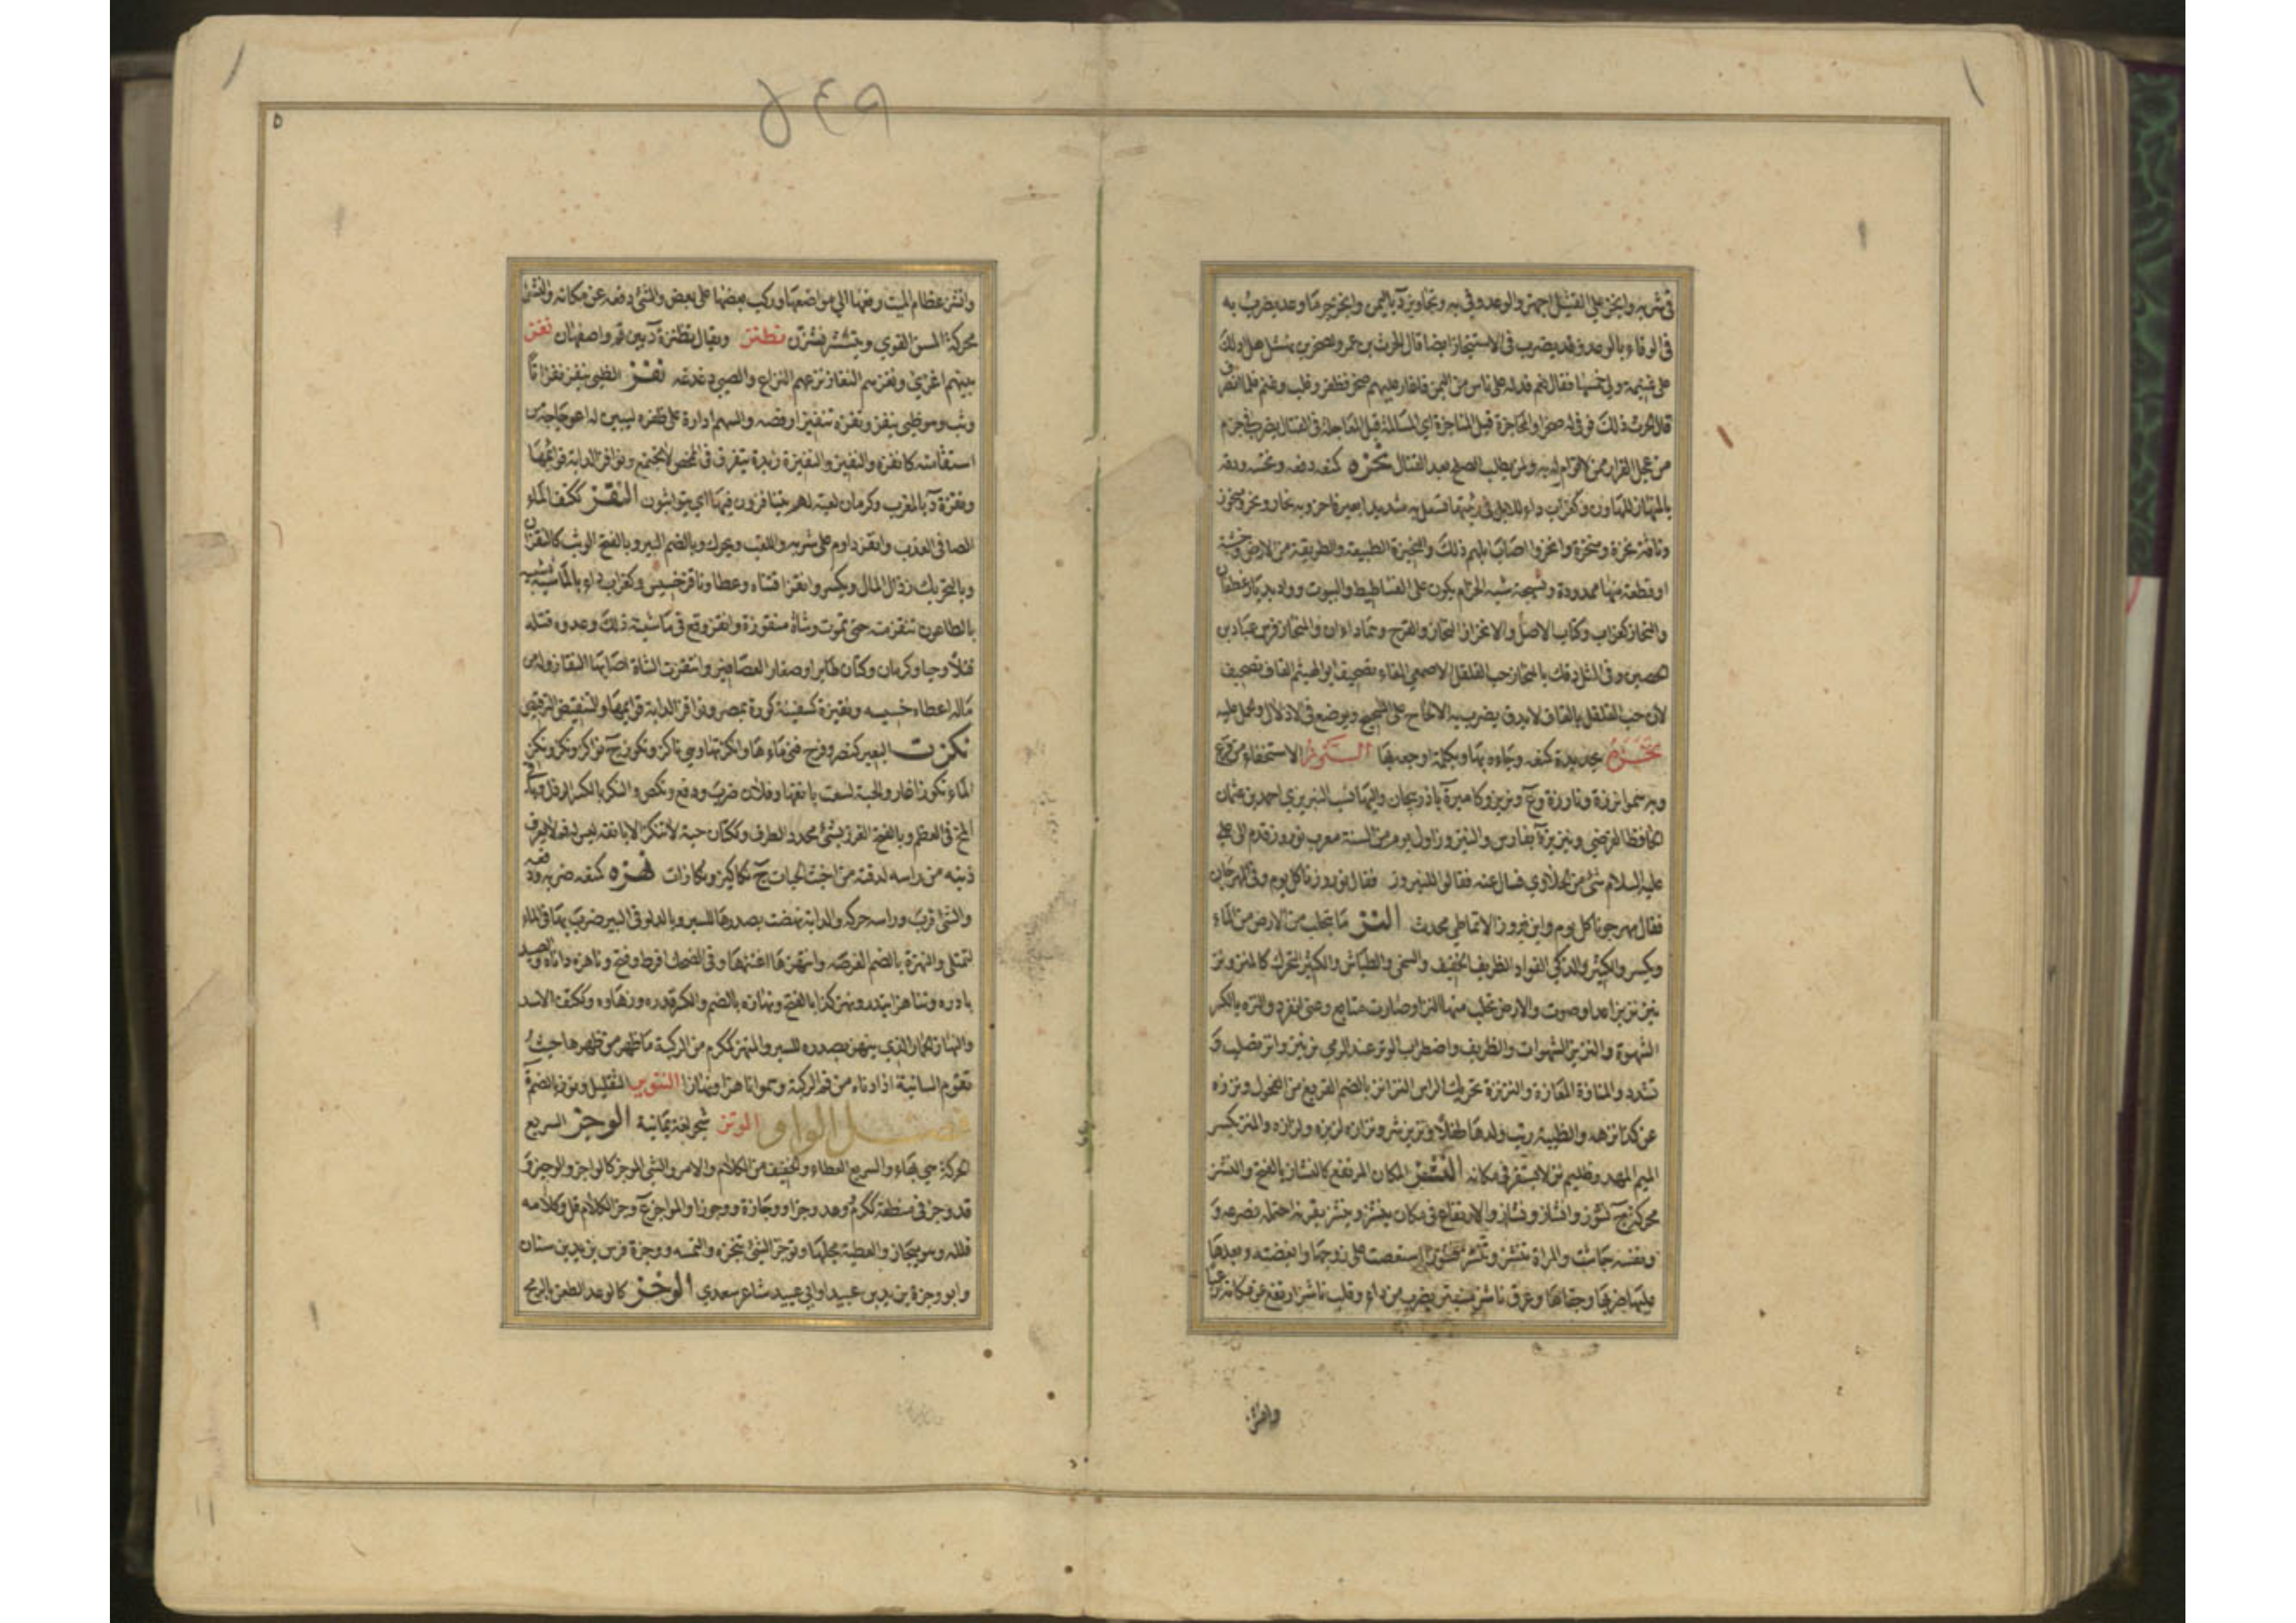 في شربه وانجز على القتيل اجهز والوعد وفى به ونجاويز د باليمن وانجز حر ما وعد يضرب به
في الوفاء بالوعد وقد يضرب في الاستنجاز ايضا قال الحرث بن عمرو لصخر بن نهشل هل ادلك
على غنيمة ولي خمسها فقال نعم فدله على ناس من اليمن فاغار عليهم صخر فظفر وغلب وغنم فلما انصرف
قال الحرث ذلك فوفى له صخر والمحاجزة قبل المناجزة اي المسالمة قبل المعاجلة في القتال يضرب في حزم
من عجل الفرار ممن لا قوام له به ولمن يطلب الصلح بعد القتال نحزه كمنعه دفعه ونخسه ودقه
بالمنحاز للهاون وكغراب داء للابل في رئتها تسعل به شديدا بعير ناحز وبه نحاز ونحز ومنحوز
وناقة نحزة ومنحزة وانحزوا اصاب ابلهم ذلك والنحيزة الطبيعة والطريقة من الارض خشنة
او قطعة منها ممدودة ونسيجة شبه الحزام يكون على الفساطيط والبيوت وواد بديار غطفان
والنحاز كغراب وكتاب الاصل والاغزاز النحاز والقرح وهما داءان والمنحاز فرس عباد بن
الحصين وفي المثل دقك بالمنحاز حب الفلفل الاصمعي الفاء تصحيف ابو الهيثم القاف تصحيف
لان حب القلقل بالقاف لا يدق يضرب به الالحاح على الشحيح ويوضع في الادلال والحمل عليه
نخزه بحديدة كمنعه وجاءه بها وبكلمة اوجعه بها النرز الاستخفاء من فزع
وبه سموا نرزة ونارزة وع ونريز كامير ة باذربيجان واليها نسب النريزي احمد بن عثمان
الحافظ الفرضي ونيريز ة بفارس والنيروز اول يوم من السنة معرب نوروز قدم الى علي
عليه السلام شئ من الحلاوي فسال عنه فقالوا للنيروز فقال نوروزنا كل يوم وفي المهرجان
فقال مهرجونا كل يوم وابن فيروز الانماطي محدث النز ما يتحلب من الارض من الماء
ويكسر والكثير والذكي الفواد الظريف الخفيف والسخي والطياش والكثير التحرك كالمنز ونز
ينز نزيزا عدا وصوت والارض تحلب منها النز او صارت منابع وعني انفرد والنزة بالكسر
الشهوة والنزيز الشهوات والظريف واضطراب الوتر عند الرمي نز ينز وانز تصلب و
تشدد والمنازة المعازة والنزنزة تحريك الراس النزانز بالضم القريع من الفحول ونززه
عن كذا نزهه والظبية ربت ولدها طفلا ونزيز شر ونزازه لزيزه ولزازه والمنز بكسر
الميم المهد وظليم نز لا يستقر في مكانه النشز المكان المرتفع كالنشاز بالفتح والنشز
محركة ج نشوز وانشاز ونشاز والارتفاع في مكان ينشز وينشز بقرنه احتمله فصرعه و
ونفسه جاشت والمراة تنشز وتنشز نشوزا استعصت على زوجها وابغضته وبعلها
عليها ضربها وجفاها وعرق ناشز منتبر يضرب من داء وقلب ناشز ارتفع عن مكانه رعبا
وانشز
٥٤٩
٥
وانشز عظام الميت رفعها الى مواضعها وركب بعضها على بعض والشئ رفعه عن مكانه والنشز
محركة المسن القوي نطنز ويقال نطنزة د بين قم واصفهان نغز
بينهم اغرى ونغزهم النغاز نزغهم النزاغ والصبي دغدغه نفز الظبي ينفز نفزانا
وثب وهو ظبي ينفز ونفزه تنفيزا رقصه والسهم اداره على ظفره ليبين له اعوجاجه من
استقامته كانفزه والنفيز والنفيزة زبدة يتفرق في المخض لا تجتمع ونوافز الدابة قوائمها
ونفزة د بالمغرب وكرمان لعبة لهم يتنافزون فيها اي يتواثبون النقز ككتف الماء
الصافي العذب وانقز داوم على شربه واللقب ويحرك وبالضم البير وبالفتح الوثب كالنقزان
وبالتحريك رذال المال ويكسر وانقز اقتناه وعطا وناقز خسيس وكغراب داء بالماشية شبيه
بالطاعون تنقز منه حتى تموت وشاة منقوزة وانقز وقع في ماشيته ذلك وعدوه قتله
قتلا وحيا وكرمان وكتان طاير او صغار العصافير وانتقزت الشاة اصابها النقاز وله من
ماله اعطاه خسيسه ونقيزة كسفينة كورة بمصر ونواقز الدابة قوايمها والتنقيز الترقيص
نكزت البير كنصر وفرح فني ماءها وانكزتها وهي ناكز ونكوز ج نواكز ونكز ونكز
الماء نكوزا غار والحية لسعت بانفها وفلان ضرب ودفع ونكص والنكز بالكسر الرذل
المخ في العظم وبالفتح الغرز بشئ محدد الطرف وككتان حية لا تنكز الا بانفه ليس له فم لا يعرف
ذنبه من راسه لدقته من اخبث الحيات ج نكاكيز ونكازات نهزه كمنعه ضربه ودفعه
والشئ قرب وراسه حركه والدابة نهضت بصدرها للسير وبالدلو في البير ضرب بها في الماء
لتمتلئ والنهزة بالضم الفرصة وانتهزها اغتنمها وفي الضحك افرط وقبح وناهزه داناه والصيد
بادره وتناهزا ابتدرا ونهز كذا بالفتح ونهازه بالضم والكسر قدره وزهاوه وككتف الاسد
والنهاز الحمار الذي ينهز بصدره للسير والمنهز ككرم من الركية ما ظهر من ظهرها حيث
تقوم السانية اذا دنا من فم الركية وسموا ناهزا ونهازا التنويز التقليل ونوز بالضم ة
فصل الواو الوتز شجر لغة يمانية الوجز السريع
الحركة هي بهاء والسريع العطاء والخفيف من الكلام والامر والشئ الموجز كالواجز والوجيز و
قد وجز في منطقه ككرم ووعد وجزا ووجازة ووجوزا والمواجز ع وجز الكلام قل وكلامه
قلله وهو ميجاز والعطية عجلها وتوجز الشئ تنجزه والتمسه ووجزة فرس يزيد بن سنان
وابو وجزة يزيد بن عبيد او ابي عبيد شاعر سعدي الوخز كالوعد الطعن بالرمح